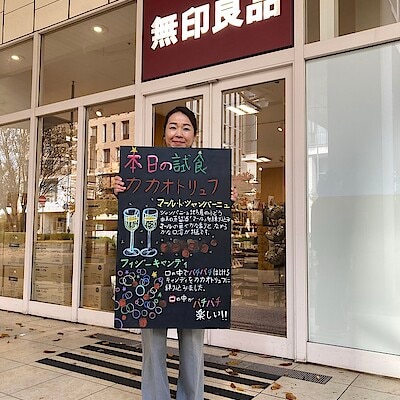 無印良品
本日の試食
カカオトリュフ
マール・ド・シャンパーニュ
フィジーキャンディ
口の中でパチパチはじける
キャンディをカカオトリュフに
練り込みました。
口の中がパチパチ
楽しい!!